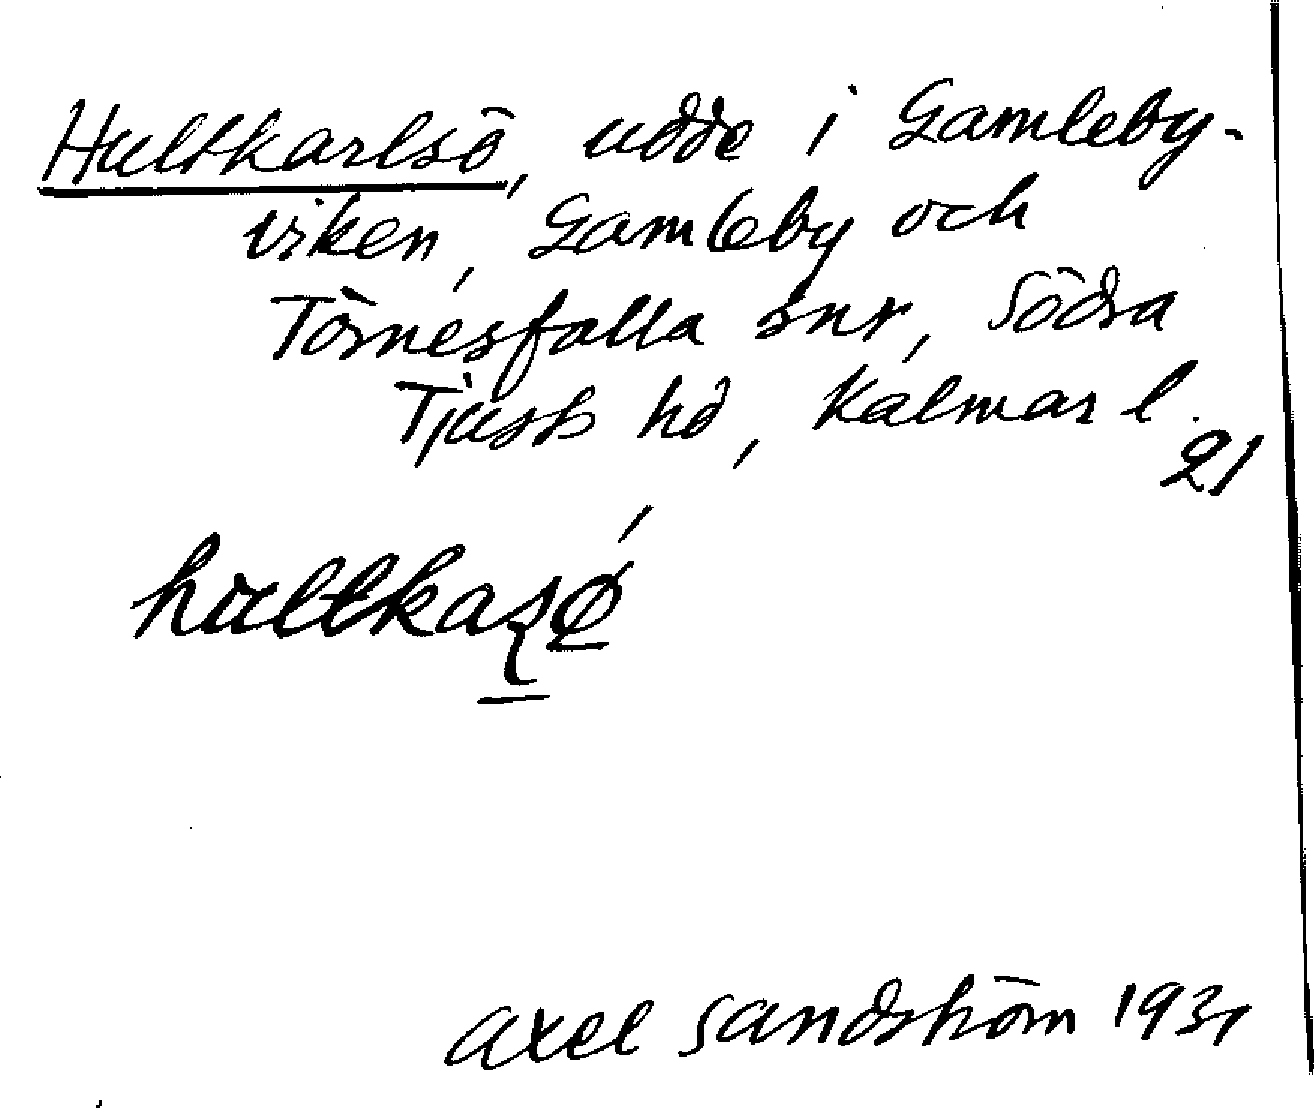 Hultkarlsö, udde i Gamleby-
viken, Gamleby och
Törnesfalla snr, Södra
Tjusts hd, Kalmar l.
21
hultkaʂǿ̱
Axel Sandström 1931